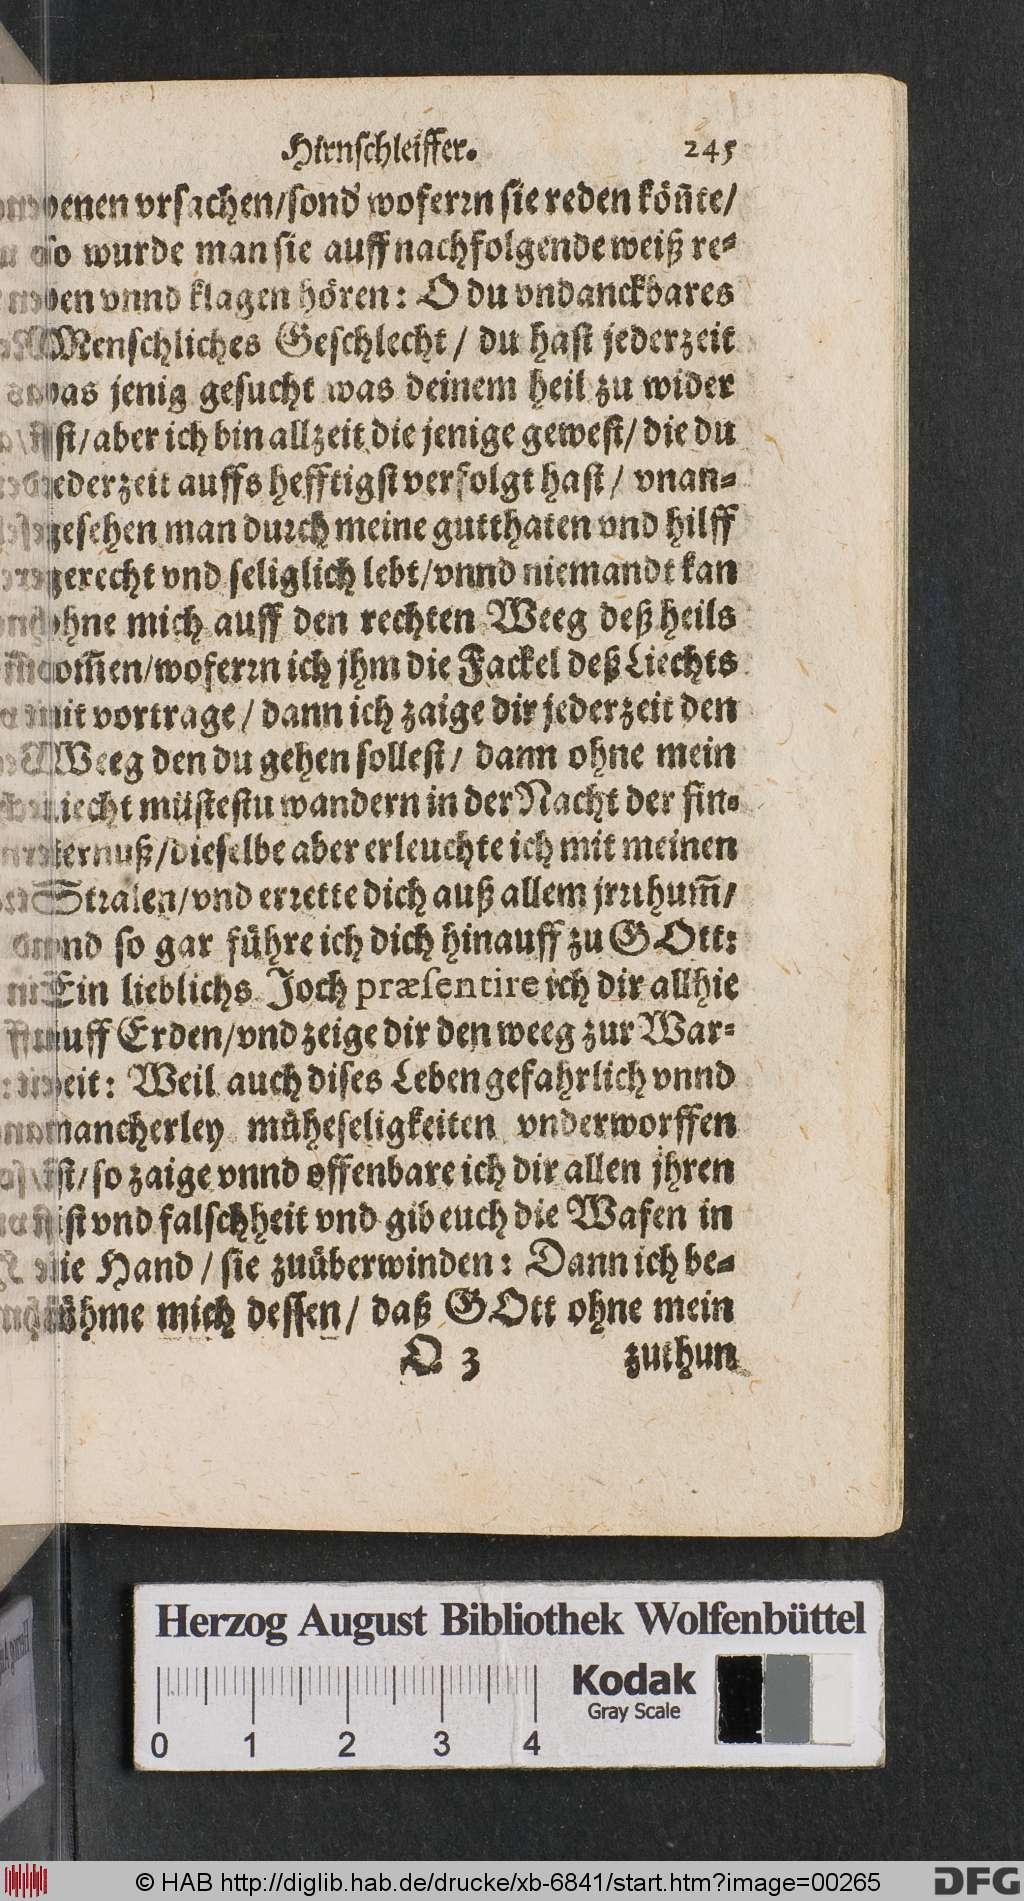 Hirnschleiffer. 245
benen vrsachen/sond' woferꝛn sie reden köñte/
so wurde man sie auff nachfolgende weiß re-
den vnnd klagen hören: O du vndanckbares
Menschliches Geschlecht / du hast jederzeit
das jenig gesucht was deinem heil zu wider
ist/ aber ich bin allzeit die jenige gewest/ die du
jederzeit auffs hefftigst verfolgt hast / vnan-
gesehen man durch meine gutthaten vnd hilff
gerecht vnd seliglich lebt/vnnd niemandt kan
ohne mich auff den rechten Weeg deß heils
kom̃en/woferꝛn ich jhm die Fackel deß Liechts
nit vortrage / dann ich zaige dir jederzeit den
Weeg den du gehen sollest/ dann ohne mein
Liecht müstestu wandern in der Nacht der fin-
sternuß/dieselbe aber erleuchte ich mit meinen
Stralen/vnd erꝛette dich auß allem jrꝛthum̃/
vnd so gar führe ich dich hinauff zu GOtt:
Ein lieblichs Joch præsentire ich dir allhie
auff Erden/vnd zeige dir den weeg zur War-
heit: Weil auch dises Leben gefahrlich vnnd
mancherley müheseligkeiten vnderworffen
ist/ so zaige vnnd offenbare ich dir allen jhren
list vnd falschheit vnd gib euch die Wafen in
die Hand / sie zuüberwinden: Dann ich be-
rühme mich dessen/ daß GOtt ohne mein
Q 3 zuthun
Herzog August Bibliothek Wolfenbüttel
Kodak
Gray Scale
0 1 2 3 4
© HAB http://diglib.hab.de/drucke/xb-6841/start.htm?image=00265
DFG